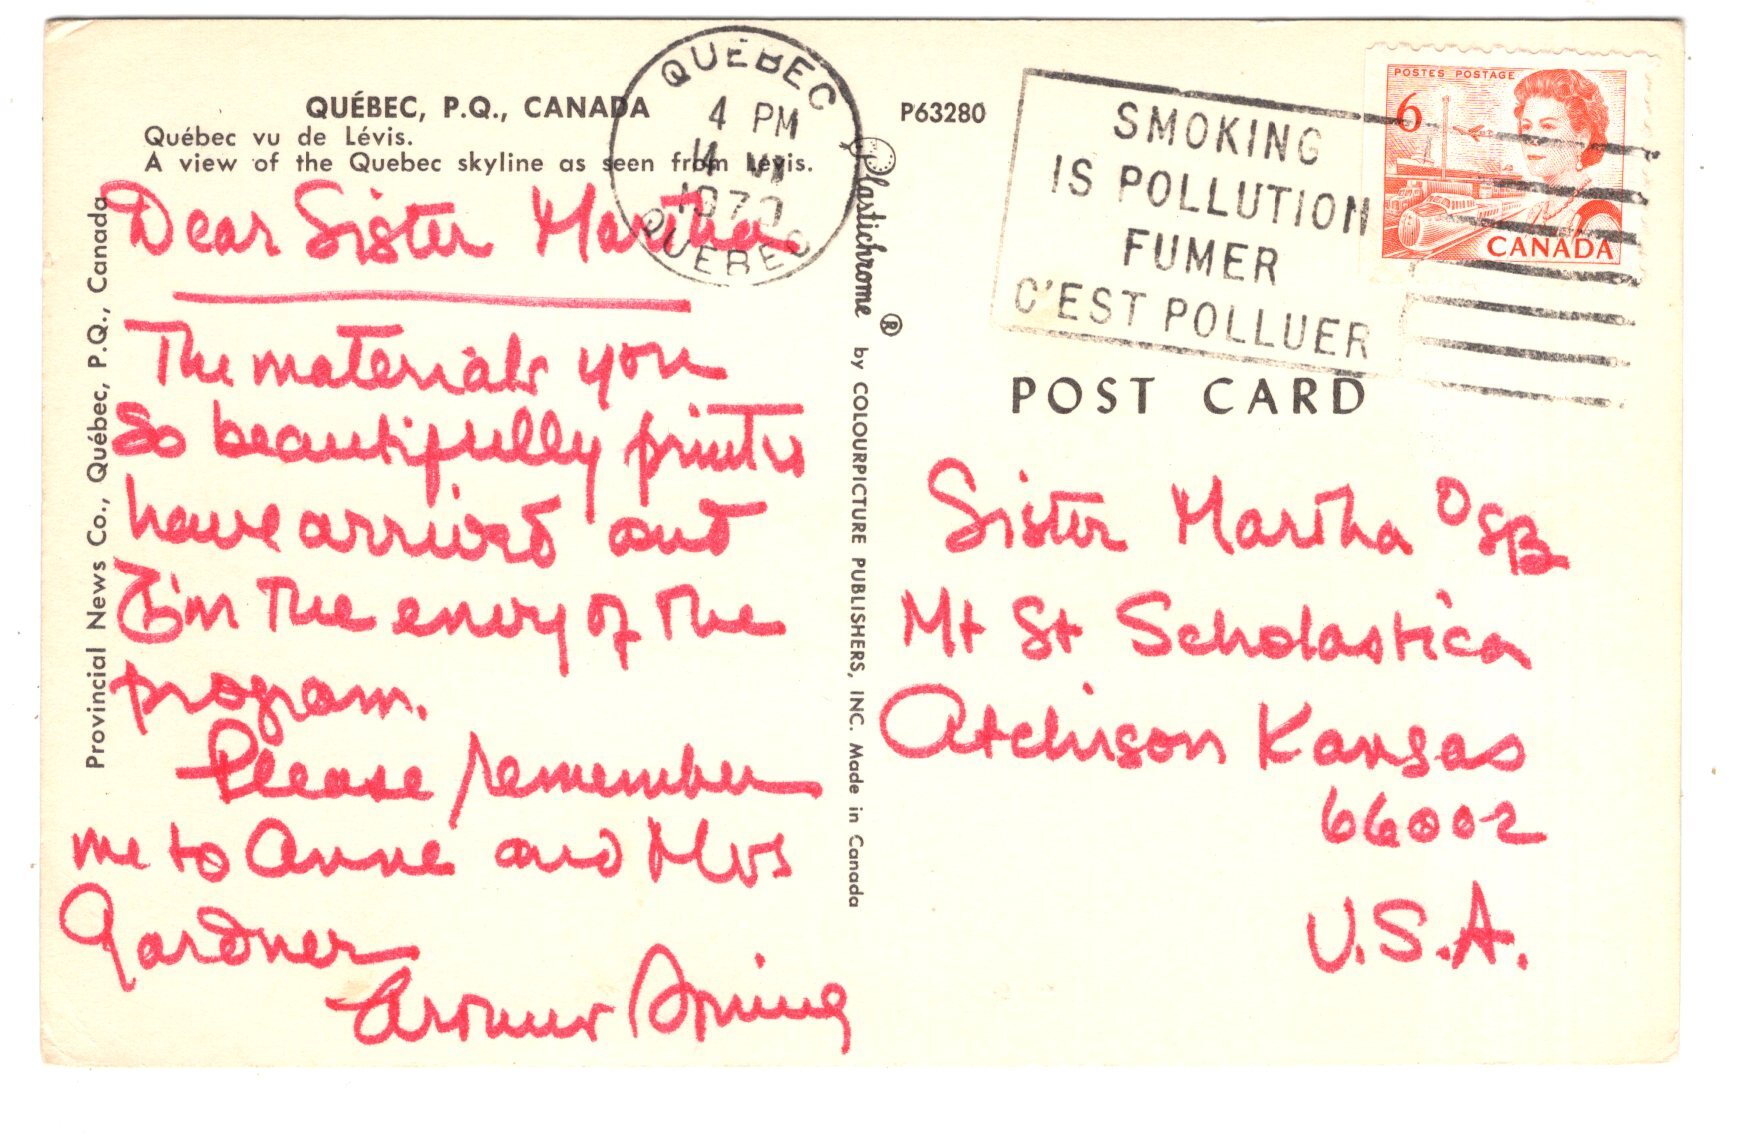 QUÉBEC, P.Q., CANADA
Québec vu de Lévis.
A view of the Quebec skyline as seen from Lévis.
Dear Sister Martha
The materials you
so beautifully printed
have arrived and
I'm the envy of the
program.
Please remember
me to Anne and Mrs
Gardner
Provincial News Co., Québec, P.Q., Canada
QUÉBEC
4 PM
14 VII
1970
QUÉBEC
P63280
Plastichrome ® by COLOURPICTURE PUBLISHERS, INC. Made in Canada
SMOKING
IS POLLUTION
FUMER
C'EST POLLUER
POSTES POSTAGE
6
CANADA
POST CARD
Sister Martha OSB
Mt St Scholastica
Atchison Kansas
66002
U.S.A.